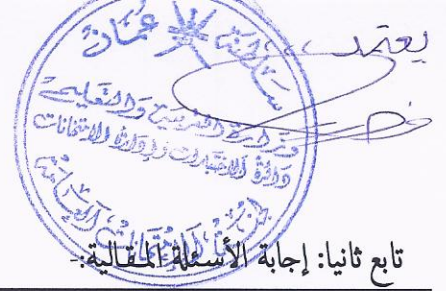 يعتمد
سلطنة عمان
وزارة التربية والتعليم
دائرة الاختبارات وإدارة الامتحانات
تابع ثانيا: إجابة الأسئلة المقالية:-